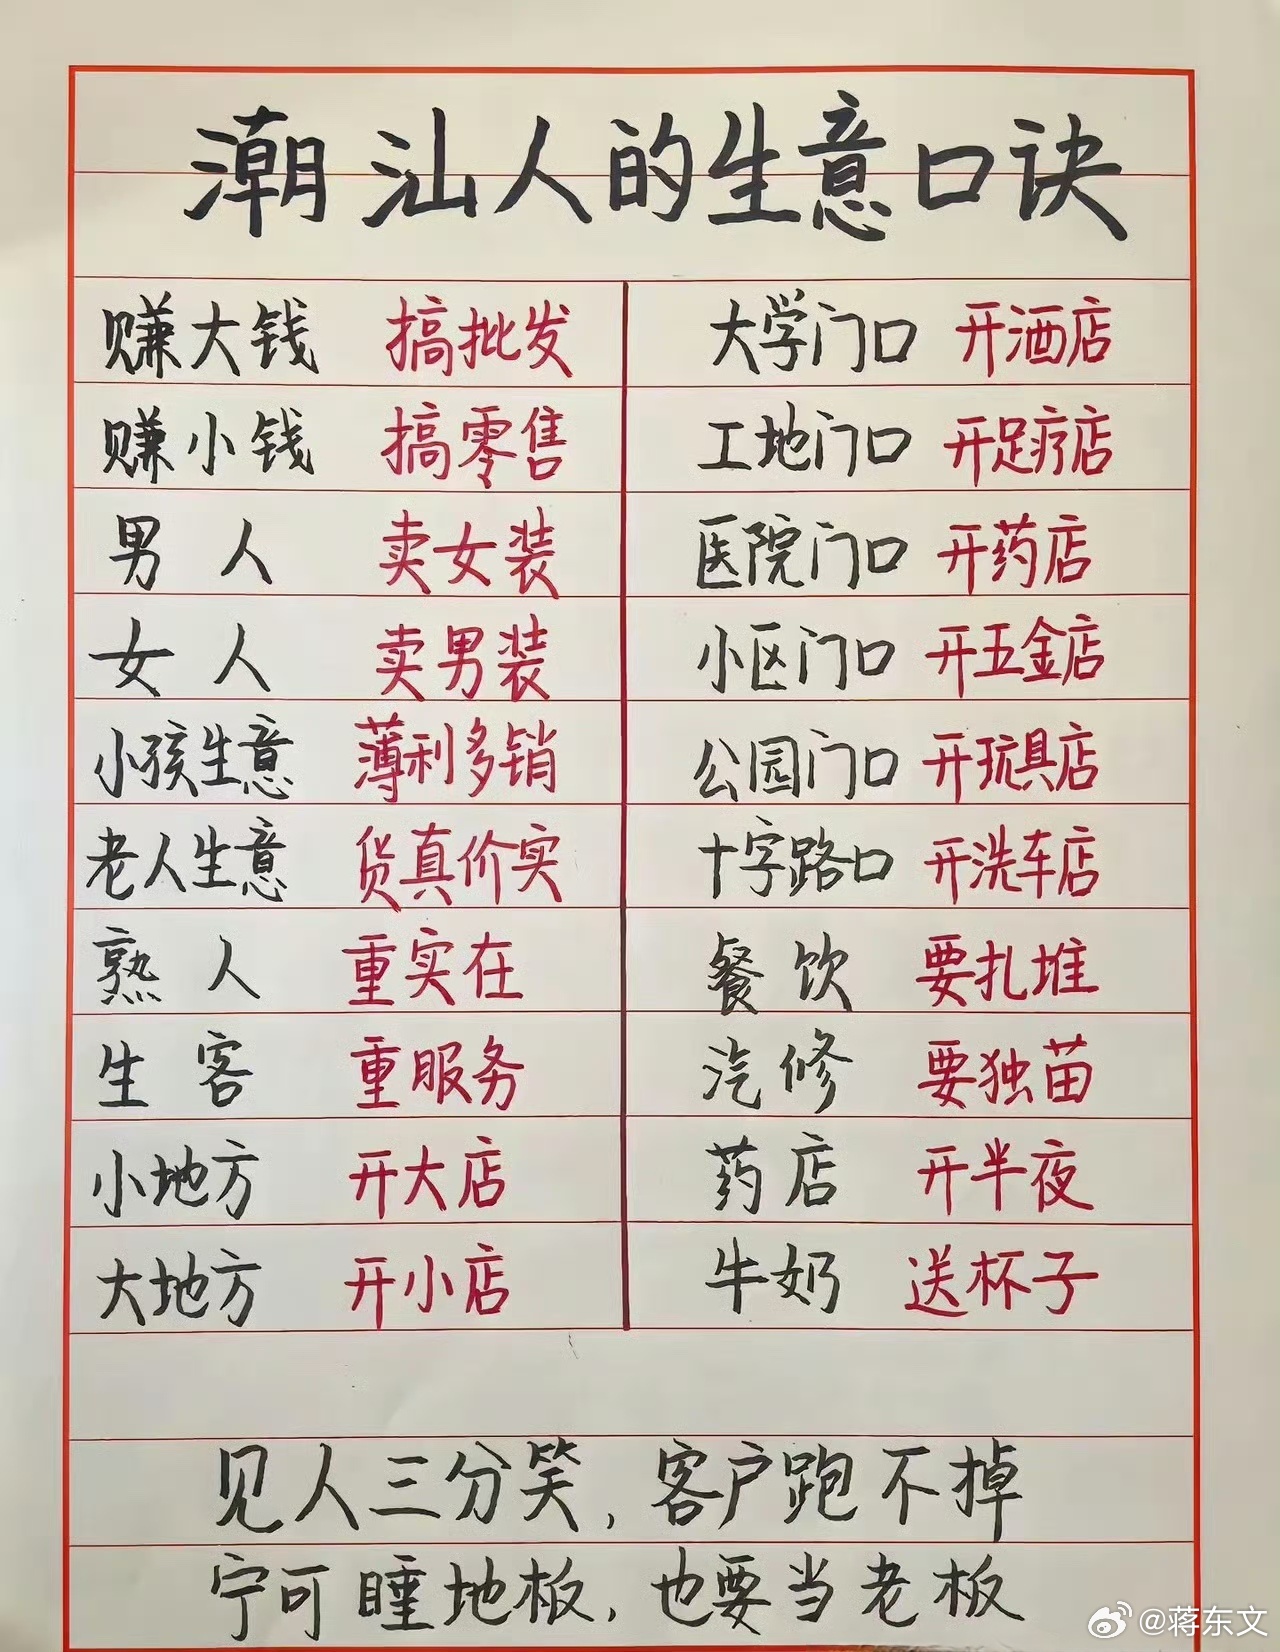 潮汕人的生意口诀
赚大钱 搞批发
赚小钱 搞零售
男人 卖女装
女人 卖男装
小孩生意 薄利多销
老人生意 货真价实
熟人 重实在
生客 重服务
小地方 开大店
大地方 开小店
大学门口 开洒店
工地门口 开足疗店
医院门口 开药店
小区门口 开五金店
公园门口 开玩具店
十字路口 开洗车店
餐饮 要扎堆
汽修 要独苗
药店 开半夜
牛奶 送杯子
见人三分笑,客户跑不掉
宁可睡地板,也要当老板
@蒋东文